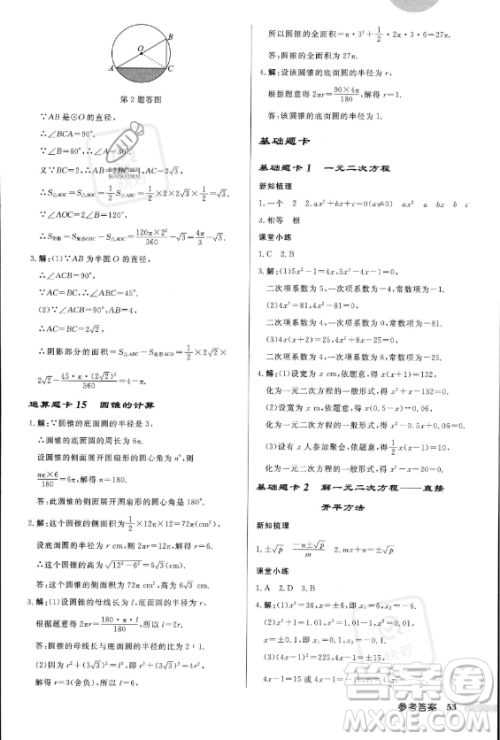 B
O
A
C
第2题答图
∵AB是⊙O的直径,
∴∠BCA=90°.
∵∠B=60°,
∴∠A=30°.
又∵BC=2,∴AB=4,AC=2√3.
∴S△AOC=1/2 S△ABC=1/2×1/2×2×2√3=√3.
∵∠AOC=2∠B=120°,
∴S阴影=S扇形AOC−S△AOC=120π×2²/360−√3=4π/3−√3.
3.解:(1)∵AB为半圆O的直径,
∴∠ACB=90°.
∵AC=BC,∴∠ABC=45°.
(2)∵∠ACB=90°,AB=4,
∴AC=BC=2√2.
∴阴影部分的面积=S△ABC−S扇形=1/2×2√2×
2√2−45·π·(2√2)²/360=4−π.
运算题卡 15 圆锥的计算
1.解:∵圆锥的底面圆的半径是3,
∴圆锥的底面圆的周长为6π.
设此圆锥的侧面展开图扇形的圆心角是n°,则
nπ×6/180=6π.解得n=180.
故此圆锥的侧面展开图扇形的圆心角是180°.
2.解:这个圆锥的侧面积=1/2×12π×12=72π(cm²).
设底面圆的半径为r,则2πr=12π,解得r=6.
∴这个圆锥的高为√(12²−6²)=6√3(cm).
3.解:(1)设圆锥的母线长为l,底面圆的半径为r.
根据题意得2πr=180·π·l/180,∴l=2r.
∴圆锥的母线长与底面圆的半径之比为2:1.
(2)∵r²+(3√3)²=l²,即r²+(3√3)²=4r²,
∴r=3(舍负),所以l=6.
所以圆锥的全面积=π·3²+1/2·2π·3·6=27π.
答:圆锥的全面积为27π.
4.解:设该圆锥的底面圆的半径为r,
根据题意得2πr=90×4π/180,解得r=1.
答:该圆锥的底面圆的半径为1.
基础题卡
基础题卡 1 一元二次方程
新知梳理
1.一个 2 2.ax²+bx+c=0(a≠0) ax² a bx b c
3.相等 根
课堂小练
1.C 2.D 3.B
4.解:(1)5x²−4x−1=0,
二次项系数为5,一次项系数为−4,常数项为−1.
(2)4x²=81,4x²−81=0,
二次项系数为4,一次项系数为0,常数项为−81.
5.解:(1)设宽为x m,根据题意,得x(x+1)=132,
化为一元二次方程的一般形式,得x²+x−132=0.
(2)设宽为x m,根据题意,得x(0.5−x)=0.06,
化为一元二次方程的一般形式,得x²−0.5x+0.06=0.
(3)设有x人参加聚会,根据题意,得1/2x(x−1)=10,
化为一元二次方程的一般形式,得x²−x−20=0.
基础题卡 2 解一元二次方程——直接
开平方法
新知梳理
1.±√p (−n±√p)/m 2.mx+n=±√p
课堂小练
1.A 2.D 3.B
4.解:(1)x²=36,x=±6,即x₁=6,x₂=−6.
(2)x²=1.01−1,x²=0.01,x=±0.1,
即x₁=0.1,x₂=−0.1.
(3)(4x−1)²=225,4x−1=±15,
4x−1=15或4x−1=−15,
参考答案 53
答案圈
MXQE.COM